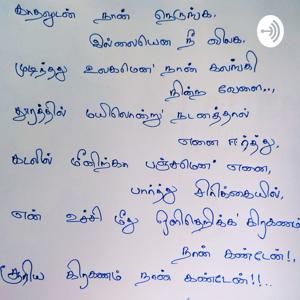 காதலுடன் நான் நெருங்க,
இல்லையென நீ விலக,
முடிந்தது உலகமென' நான் கலங்கி
நின்ற வேளை..,
தூரத்தில் மயிலொன்று' நடனத்தால்
எனை ஈர்த்து,
கடலில் மீனிற்கா பஞ்சமென' எனை,
பார்த்து சிரிக்கையில்,
என் உச்சி மீது ஒளிதெறிக்க' கிரகணம்
நான் கண்டேன்!,
சூரிய கிரகணம் நான் கண்டேன்!!..